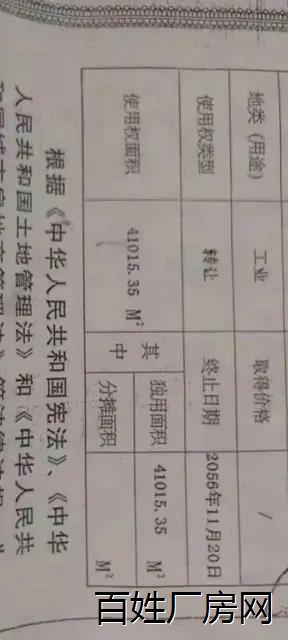 地类（用途） 工业 取得价格 /
使用权类型 转让 终止日期 2056年11月20日
使用权面积 41015.35 M² 其中 独用面积 41015.35 M²
分摊面积 M²
根据《中华人民共和国宪法》、《中华
人民共和国土地管理法》和《中华人民共
百姓厂房网